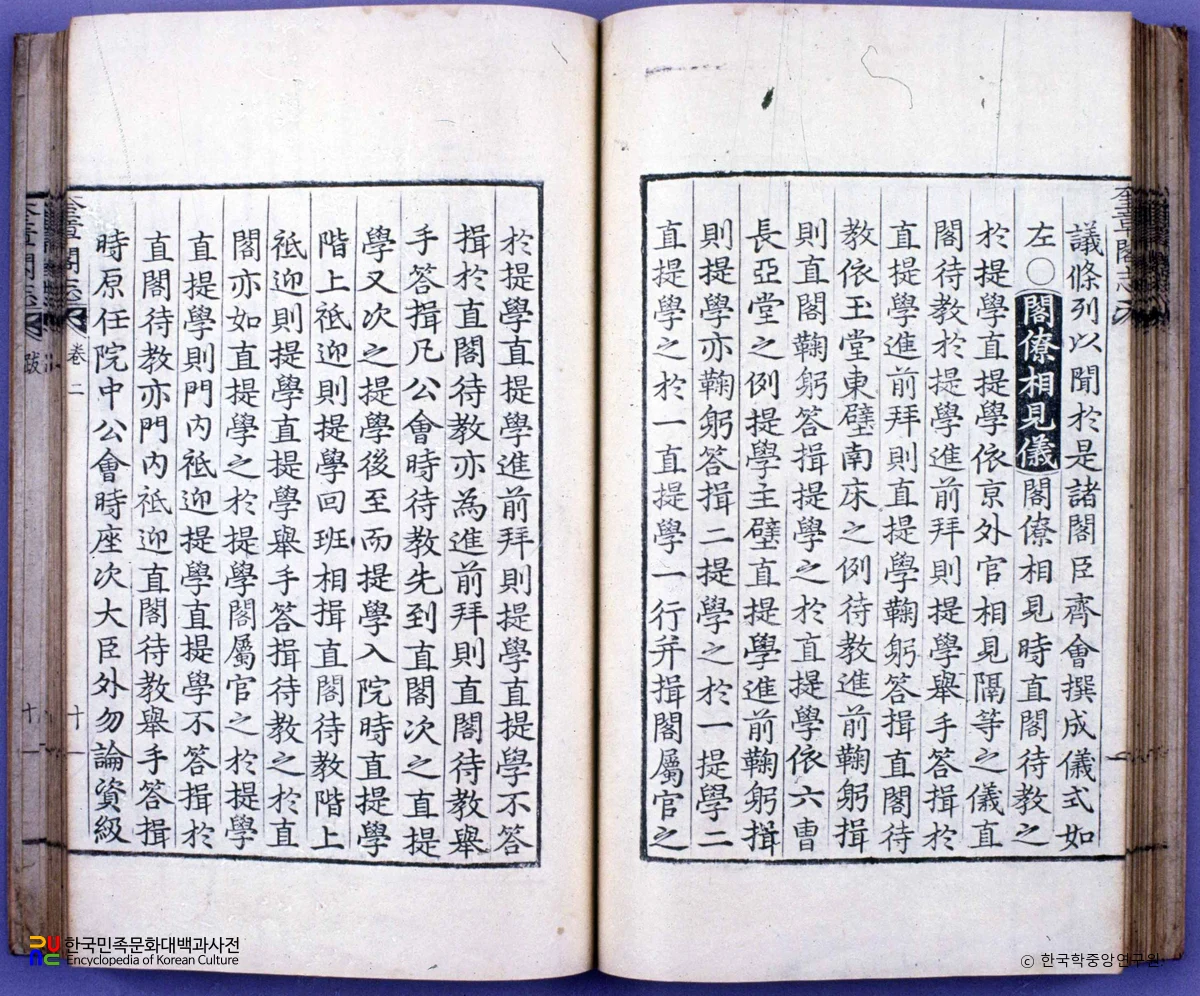 奎章閣志
議條列以聞於是諸閣臣齊會撰成儀式如
左○閣僚相見儀閣僚相見時直閣待教之
於提學直提學依京外官相見隔等之儀直
閣待教於提學進前拜則提學舉手答揖於
直提學進前拜則直提學鞠躬答揖直閣待
教依玉堂東壁南床之例待教進前鞠躬揖
則直閣鞠躬答揖提學之於直提學依六曺
長亞堂之例提學主壁直提學進前鞠躬揖
則提學亦鞠躬答揖二提學之於一提學二
直提學之於一直提學一行并揖閣屬官之
於提學直提學進前拜則提學直提學不答
揖於直閣待教亦為進前拜則直閣待教舉
手答揖凡公會時待教先到直閣次之直提
學又次之提學後至而提學入院時直提學
階上祗迎則提學回班相揖直閣待教階上
祗迎則提學直提學舉手答揖待教之於直
閣亦如直提學之於提學閣屬官之於提學
直提學則門內祗迎提學直提學不答揖於
直閣待教亦門內祗迎直閣待教舉手答揖
時原任院中公會時座次大臣外勿論資級
奎章閣志
卷二
十一
奎章閣志
跋
十
한국민족문화대백과사전
Encyclopedia of Korean Culture
© 한국학중앙연구원